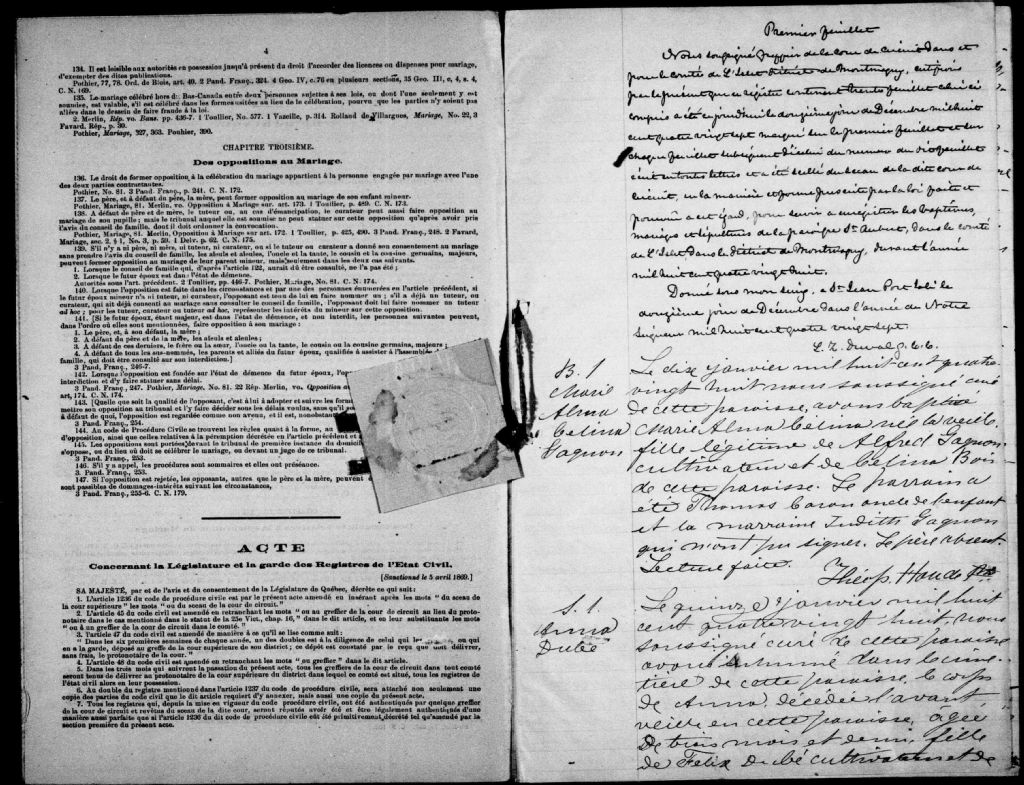 4
134. Il est loisible aux autorités en possession jusqu'à présent du droit l'accorder des licences ou dispenses pour mariage,
d'exempter des dites publications.
Pothier, 77, 78. Ord. de Blois, art. 40. 2 Pand. Franç., 324. 4 Geo. IV, c. 76 en plusieurs sections, 35 Geo. III, c, 4, s. 4,
C. N. 169.
135. Le mariage célébré hors du Bas-Canada entre deux personnes sujettes à ses lois, ou dont l'une seulement y est
soumise, est valable, s'il est célébré dans les formes usitées au lieu de la célébration, pourvu que les parties n'y soient pas
allées dans le dessein de faire fraude à la loi.
2. Merlin, Rép. vo. Bans. pp. 436-7. 1 Toullier, No. 577. 1 Vazeille, p. 314. Rolland de Villargues, Mariage, No. 22, 3
Favard. Rép., p. 39.
Pothier, Mariage, 327, 363. Pouhier, 390.
CHAPITRE TROISIÈME.
Des oppositions au Mariage.
136. Le droit de former opposition à la célébration du mariage appartient à la personne engagée par mariage avec l'une
des deux parties contractantes.
Pothier, No. 81. 3 Pand. Franç., p. 241. C. N. 172.
137. Le père, et à défaut du père, la mère, peut former opposition au mariage de son enfant mineur.
Pothier, Mariage, 81. Merlin, vo. Opposition à Mariage sur art. 173. 1 Toullier, p. 489. C. N. 173.
138. A défaut de père et de mère, le tuteur ou, au cas d'émancipation, le curateur peut aussi faire opposition au
mariage de son pupille ; mais le tribunal auquel elle est soumise ne peut statuer sur cette opposition qu'après avoir pris
l'avis du conseil de famille, dont il doit ordonner la convocation.
Pothier, Mariage, 81. Merlin, Opposition à Mariage sur art. 172. 1 Toullier, p. 425, 490. 3 Pand. Franç., 248. 2 Favard,
Mariage, sec. 2, § 1, No. 3, p. 59. 1 Delv. p. 62. C. N. 175.
139. S'il n'y a ni père, ni mère, ni tuteur, ni curateur, ou si le tuteur ou curateur a donné son consentement au mariage
sans prendre l'avis du conseil de famille, les aïeuls et aïeules, l'oncle et la tante, le cousin et la cousine germains, majeurs,
peuvent former opposition au mariage de leur parent mineur, mais seulement dans les deux cas suivants.
1. Lorsque le conseil de famille qui, d'après l'article 122, aurait dû être consulté, ne l'a pas été ;
2. Lorsque le futur époux est dans l'état de démence.
Autorités sous l'art. précédent. 2 Toullier, pp. 446-7. Pothier, Mariage, No. 81. C. N. 174.
140. Lorsque l'opposition est faite dans les circonstances et par une des personnes énumérées en l'article précédent, si
le futur époux mineur n'a ni tuteur, ni curateur, l'opposant est tenu de lui en faire nommer un ; s'il a déjà un tuteur, ou
curateur, qui ait déjà consenti au mariage sans consulter le conseil de famille, l'opposant doit lui faire nommer un tuteur
ad hoc ; pour les tuteur, curateur ou tuteur ad hoc, représenter les intérêts du mineur sur cette opposition.
141. [Si le futur époux, étant majeur, est dans l'état de démence, et non interdit, les personnes suivantes peuvent,
dans l'ordre où elles sont mentionnées, faire opposition à son mariage :
1. Le père, et, à son défaut, la mère ;
2. A défaut du père et de la mère, les aïeuls et aïeules ;
3. A défaut de ces derniers, le frère ou la sœur, l'oncle ou la tante, le cousin ou la cousine germains, majeurs ;
4. A défaut de tous les sus-nommés, les parents et alliés du futur époux, qualifiés à assister à l'assemblée
famille, qui doit être consulté sur son interdiction.]
3 Pand. Franç., 246-7.
142. Lorsque l'opposition est fondée sur l'état de démence du futur époux,
interdiction et d'y faire statuer sans délai.
3 Pand. Franç., 247. Pothier, Mariage, No. 81. 22 Rép. Merlin, vo. Opposition
art, 174. C. N. 174.
143. [Quelque soit la qualité de l'opposant, c'est à lui à adopter et suivre les
mettre son opposition au tribunal et l'y faire décider sous les délais voulus, sans qu'il
à défaut de quoi, l'opposition est regardée comme non avenue, et il est, nonobstant
3 Pand. Franç., 254.
144. Au code de Procédure Civile se trouvent les règles quant à la forme, au
d'opposition, ainsi que celles relatives à la péremption décrétée en l'article précédent et
145. Les oppositions sont portées devant le tribunal de première instance du domicile
s'oppose, ou du lieu où doit se célébrer le mariage, ou devant un juge de ce tribunal.
3 Pand. Franç., 253.
146. S'il y a appel, les procédures sont sommaires et elles ont préséance.
3 Pand. Franç., 253.
147. Si l'opposition est rejetée, les opposants, autres que le père et la mère, peuvent
sont passibles de dommages-intérêts suivant les circonstances,
3 Pand. Franç., 255-6. C. N. 179.
ACTE
Concernant la Législature et la garde des Registres de l'Etat Civil.
[Sanctionné le 5 avril 1869.]
SA MAJESTÉ, par et de l'avis et du consentement de la Législature de Québec, décrète ce qui suit :
1. L'article 1236 du code de procédure civile est par le présent acte amendé en insérant après les mots " du sceau de
la cour supérieure " les mots " ou du sceau de la cour de circuit."
2. L'article 45 du code civil est amendé en retranchant les mots " ou au greffier de la cour de circuit au lieu du proto-
notaire dans le cas mentionné dans le statut de la 25e Vict., chap. 16," dans le dit article, et en leur substituant les mots
" ou à un greffier de la cour de circuit dans le comté."
3. L'article 47 du code civil est amendé de manière à ce qu'il se lise comme suit :
" Dans les six premières semaines de chaque année, un des doubles est à la diligence de celui qui les
en a la garde, déposé au greffe de la cour supérieure de son district ; ce dépôt est constaté par le reçu que doit délivrer,
sans frais, le protonotaire de la cour."
4. L'article 48 du code civil est amendé en retranchant les mots " ou greffier " dans le dit article.
5. Dans les trois mois qui suivront la passation du présent acte, tous les greffiers de la cour de circuit dans tout comté
seront tenus de délivrer au protonotaire de la cour supérieure du district dans lequel ce comté est situé, tous les registres de
l'état civil alors en leur possession.
6. Au double du registre mentionné dans l'article 1237 du code de procédure civile, sera attaché non seulement une
copie des parties du code civil que le dit article requiert d'y annexer, mais aussi une copie du présent acte.
7. Tous les registres qui, depuis la mise en vigueur du code procédure civile, ont été authentiqués par quelque greffier
de la cour de circuit et revêtus du sceau de la dite cour, seront réputés avoir été et être légalement authentiqués d'une
manière aussi parfaite que si l'article 1236 du dit code de procédure civile eût été primitivement décrété tel qu'amendé par la
section première du présent acte.
Premier feuillet
Nous soussigné greffier de la cour de circuit dans et
pour le comté de L'Islet district de Montmagny, certifions
par le présent que ce régistre contenant trente feuillets celui-ci
compris a été aujourd'hui le douzième jour de Décembre mil huit
cent quatre vingt sept marqué sur le premier feuillet et sur
chaque feuillet subséquent d'icelui du numéro du dit feuillet
écrit en toutes lettres et a été scellé du sceau de la dite cour de
circuit, en la manière et forme prescrite par la loi faite et
pourvue à cet égard, pour servir à enregistrer les baptêmes,
mariages et sépultures de la paroisse St Aubert, dans le comté
de L'Islet dans le district de Montmagny, durant l'année
mil huit cent quatre vingt huit.
Donné sous mon seing, à St Jean Port Joli le
douzième jour de Décembre dans l'année de Notre
Seigneur mil huit cent quatre vingt sept.
L. Z. Duval g. c. c.
B. 1
Marie
Alma
Celina
Gagnon
Le dix janvier mil huit cent quatre
vingt huit nous soussigné curé
de cette paroisse, avons baptisé
Marie Alma Celina née la veille,
fille légitime de Alfred Gagnon
cultivateur et de Celina Bois
de cette paroisse. Le parrain a
été Thomas Caron oncle de l'enfant
et la marraine Judith Gagnon
qui n'ont pu signer. Le père absent.
Lecture faite.
Théop. Houde Ptre
S. 1.
Anna
Dubé
Le quinze janvier mil huit
cent quatre vingt huit, nous
soussigné curé de cette paroisse
avons inhumé dans le cime-
tière de cette paroisse, le corps
de Anna, décédée l'avant
veille en cette paroisse, agée
de trois mois et demi, fille
de Felix Dubé cultivateur et de